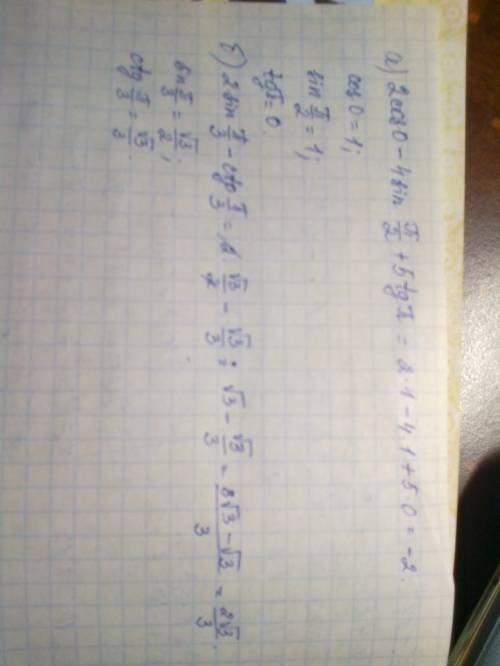 а) 2cos 0 - 4sin π/2 + 5tg π = 2·1 - 4·1 + 5·0 = -2.
cos 0 = 1;
sin π/2 = 1;
tg π = 0.
б) 2 sin π/3 - ctg π/3 = 2 √3/2 - √3/3 = √3 - √3/3 = 3√3 - √3/3 = 2√3/3.
sin π/3 = √3/2;
ctg π/3 = √3/3.